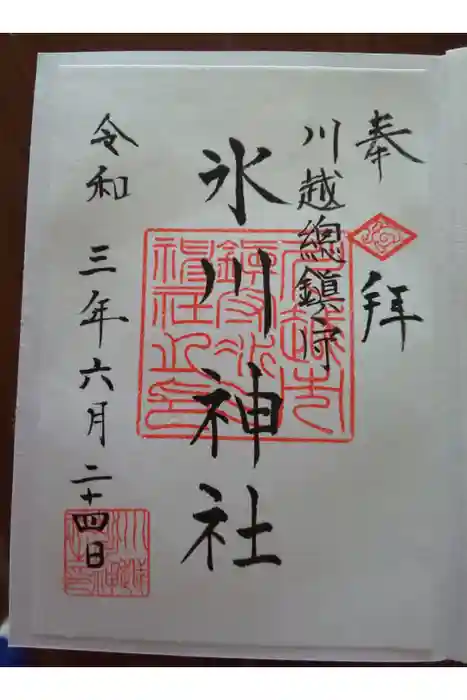 奉拝
川越總鎮守
氷川神社
令和三年六月二十四日